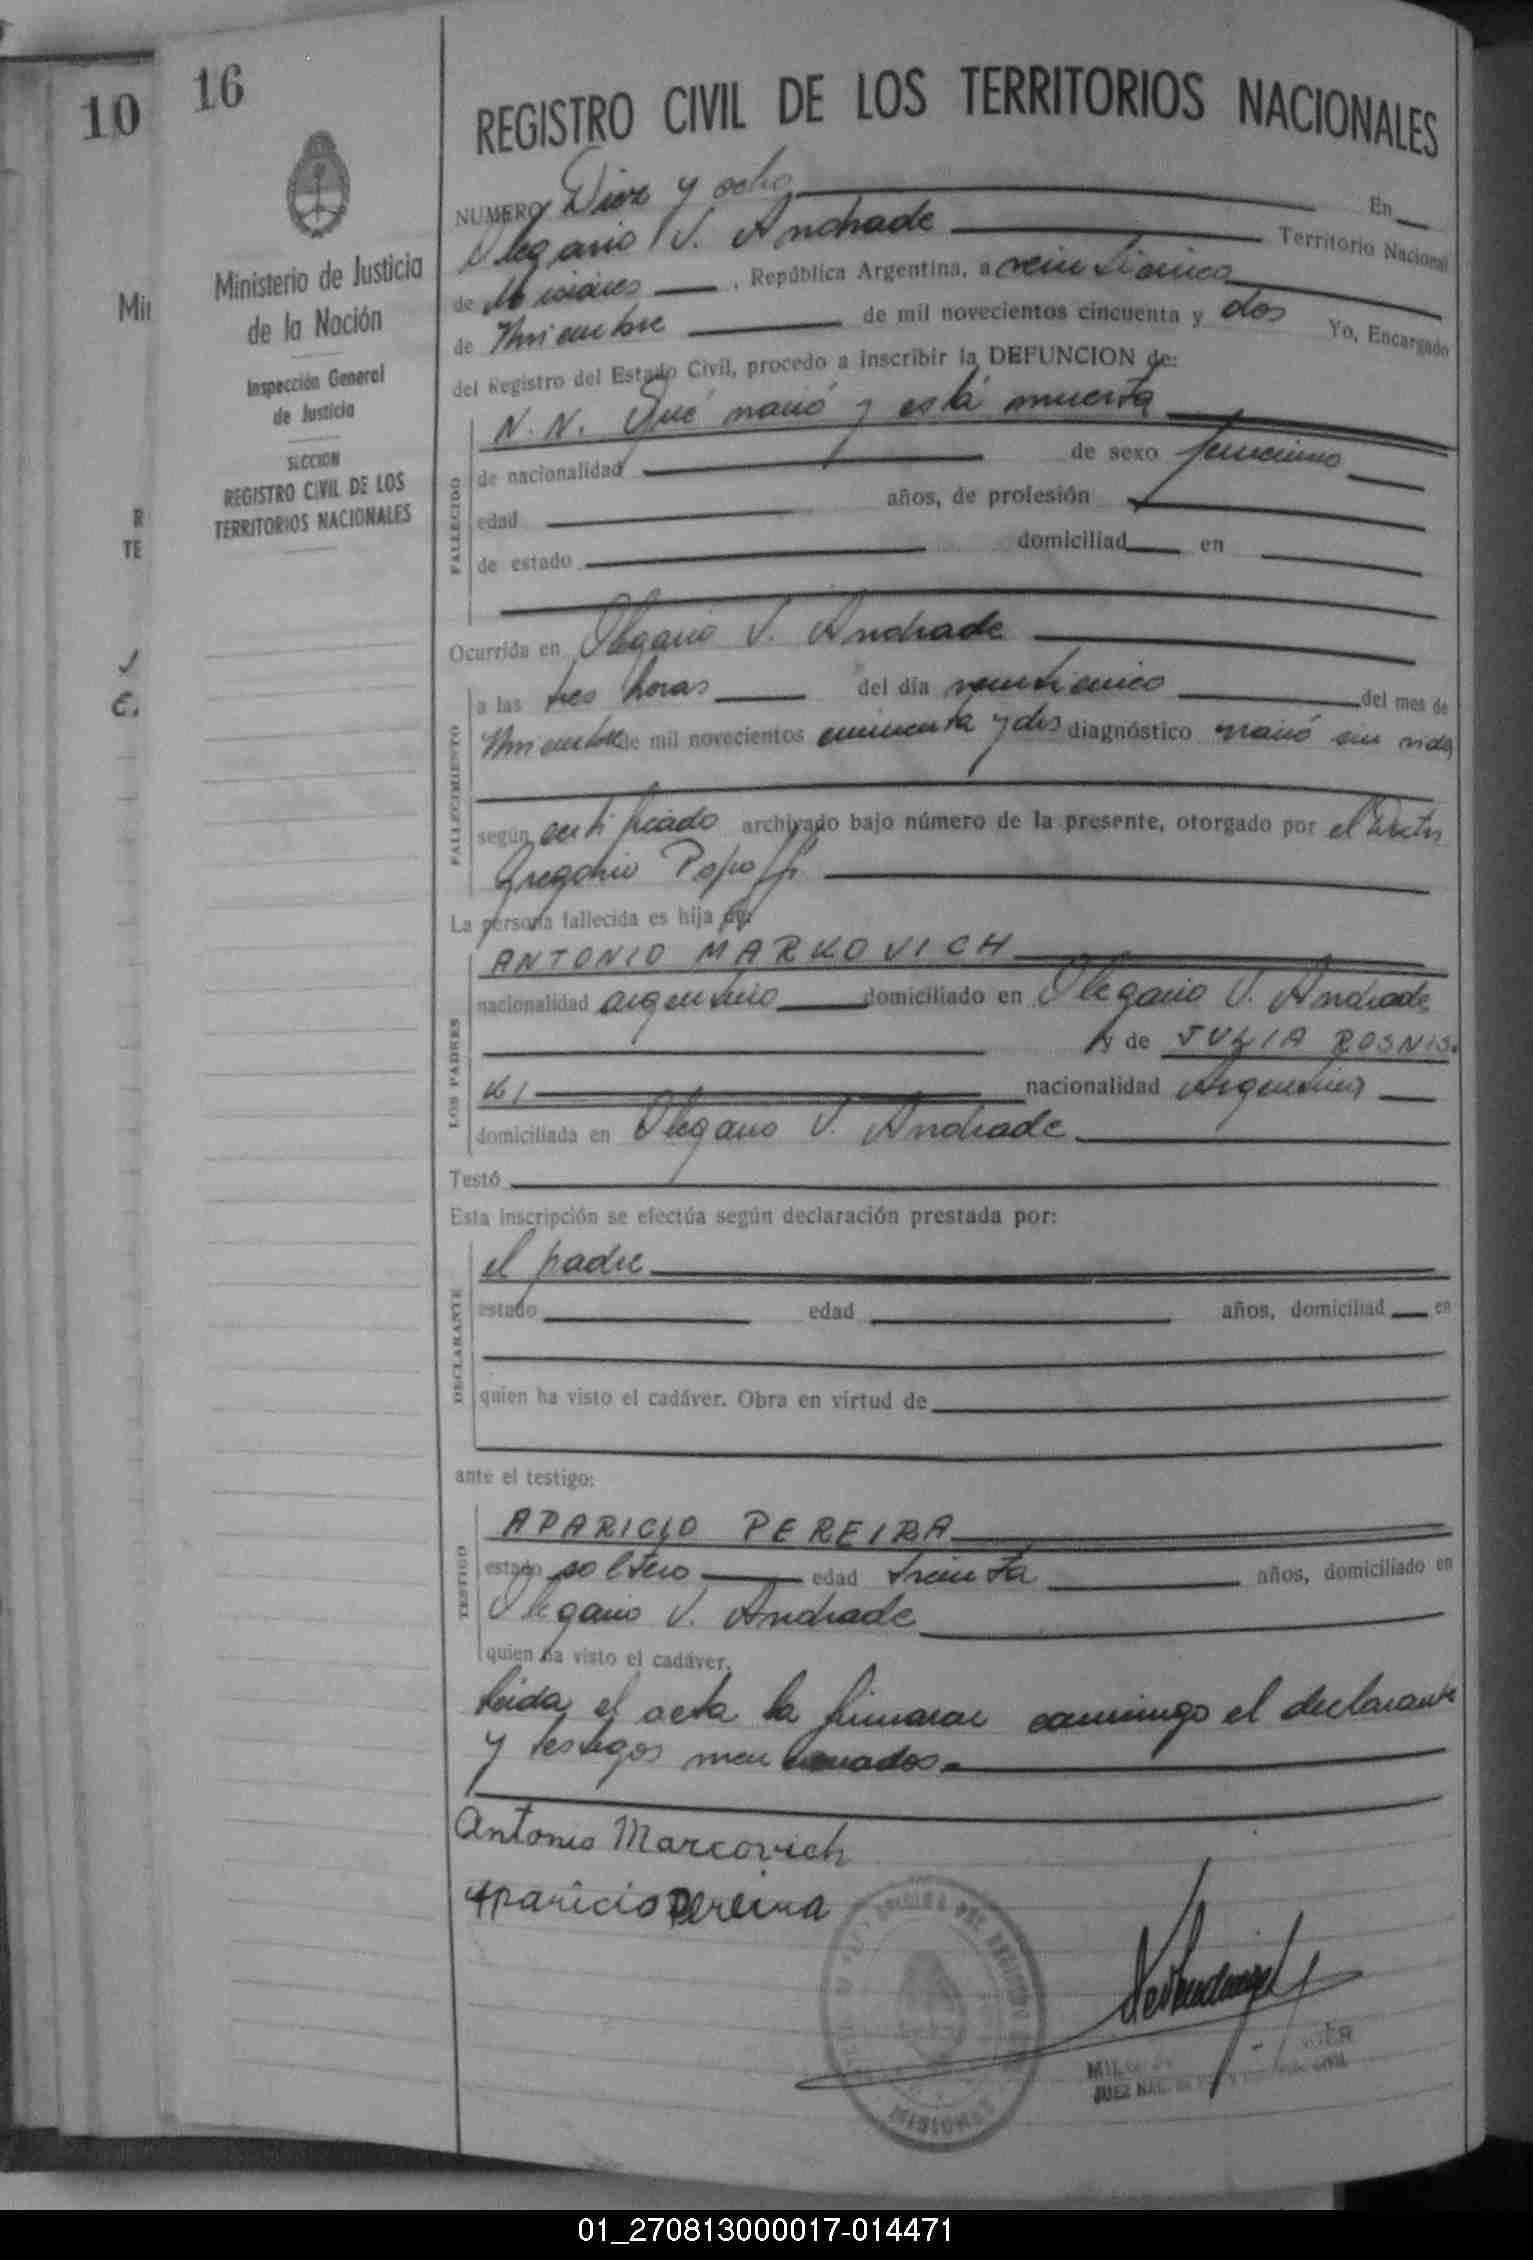 10
16
Mi
R
TE
Ministerio de Justicia
de la Nación
Inspección General
de Justicia
SECCION
REGISTRO CIVIL DE LOS
TERRITORIOS NACIONALES
REGISTRO CIVIL DE LOS TERRITORIOS NACIONALES
NUMERO Diez y ocho En
Olegario V. Andrade Territorio Nacional
de Misiones, República Argentina, a veinticinco
de Noviembre de mil novecientos cincuenta y dos Yo, Encargado
del Registro del Estado Civil, procedo a inscribir la DEFUNCION de:
FALLECIDO
N.N. Qué nació y está muerta
de nacionalidad de sexo femenino
edad años, de profesión
de estado domiciliad en
Ocurrida en Olegario V. Andrade
FALLECIMIENTO
a las tres horas del día veinticinco del mes de
Noviembre de mil novecientos cincuenta y dos diagnóstico nació sin vida
según certificado archivado bajo número de la presente, otorgado por el Doctor
Gregorio Popoff
La persona fallecida es hija de:
LOS PADRES
ANTONIO MARKOVICH
nacionalidad argentino domiciliado en Olegario V. Andrade
y de JULIA ROSNIS.
KI nacionalidad Argentina
domiciliada en Olegario V. Andrade
Testó
Esta inscripción se efectúa según declaración prestada por:
DECLARANTE
el padre
estado edad años, domiciliad en
quien ha visto el cadáver. Obra en virtud de
ante el testigo:
TESTIGO
APARICIO PEREIRA
estado soltero edad treinta años, domiciliado en
Olegario V. Andrade
quien ha visto el cadáver.
Leida el acta la firmaron conmigo el declarante
y testigos mencionados.
Antonio Marcovich
Aparicio Pereira
MISIONES
JUEZ
01_270813000017-014471